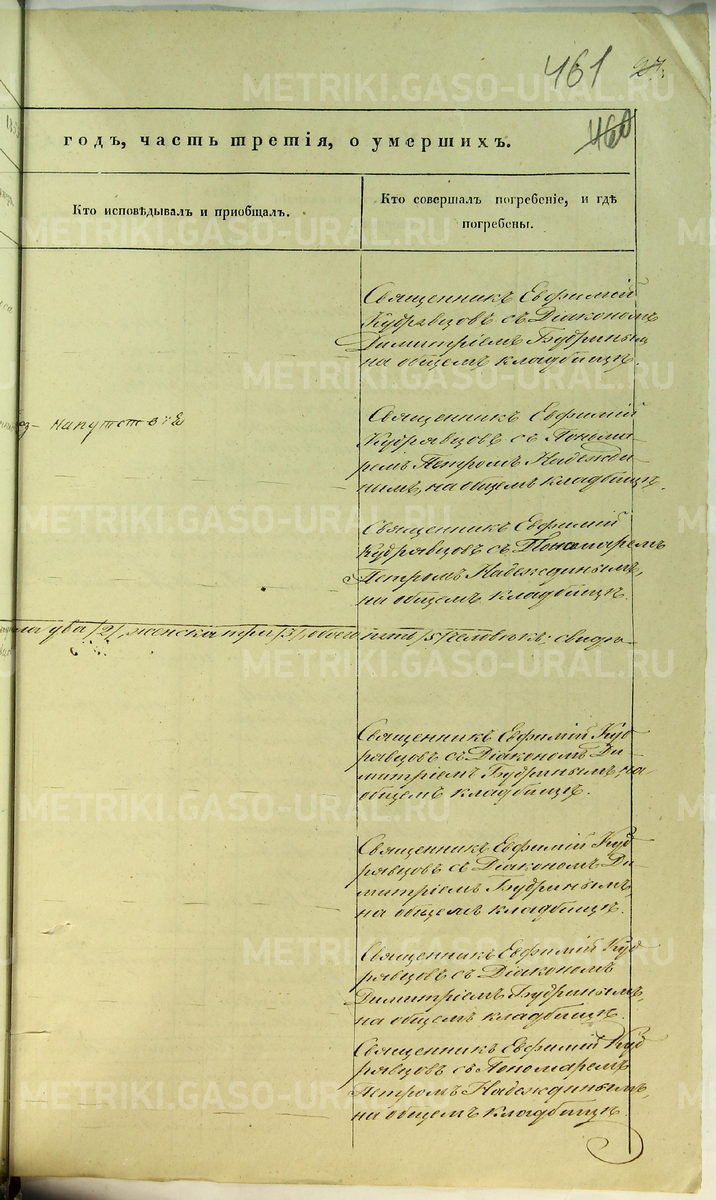 461
460
годъ, часть третія, о умершихъ.
Кто исповѣдывалъ и приобщалъ.
Кто совершалъ погребеніе, и гдѣ
погребены.
Священникъ Евфимій
Кудрявцовъ съ Діакономъ
Димитріемъ Будринымъ
на общемъ кладбищѣ.
Священникъ Евфимій
Кудрявцовъ съ Понома-
ремъ Петромъ Надежди-
нымъ, на общемъ кладбищѣ.
Священникъ Евфимій
Кудрявцовъ съ Пономаремъ
Петромъ Надеждинымъ,
на общемъ кладбищѣ.
два /2/, женска три /3/, обоего пять /5/ человѣкъ; свидѣ-
Священникъ Евфимій Куд
рявцовъ съ Діакономъ Ди-
митріемъ Будринымъ, на
общемъ кладбищѣ.
Священникъ Евфимій Куд
рявцовъ съ Діакономъ Ди-
митріемъ Будринымъ,
на общемъ кладбищѣ.
Священникъ Евфимій Куд
рявцовъ съ Діакономъ
Димитріемъ Будринымъ,
на общемъ кладбищѣ.
Священникъ Евфимій Куд
рявцовъ съ Пономаремъ
Петромъ Надеждинымъ,
на общемъ кладбищѣ
METRIKI.GASO-URAL.RU